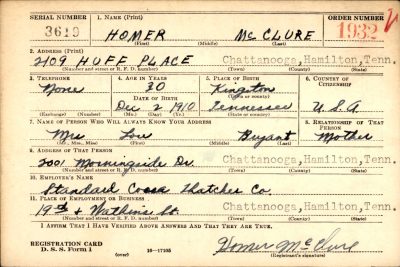 SERIAL NUMBER 1. NAME (Print) ORDER NUMBER
3619 HOMER MC CLURE 1932
(First) (Middle) (Last)
2. ADDRESS (Print)
2109 HUFF PLACE Chattanooga, Hamilton, Tenn.
(Number and street or R. F. D. number) (Town) (County) (State)
3. TELEPHONE 4. AGE IN YEARS 5. PLACE OF BIRTH 6. COUNTRY OF CITIZENSHIP
None 30 Kingston
DATE OF BIRTH (Town or county)
Dec 2 1910 Tennessee U.S.A
(Exchange) (Number) (Mo.) (Day) (Yr.) (State or country)
7. NAME OF PERSON WHO WILL ALWAYS KNOW YOUR ADDRESS 8. RELATIONSHIP OF THAT PERSON
Mrs Lou Bryant Mother
(Mr., Mrs., Miss) (First) (Middle) (Last)
9. ADDRESS OF THAT PERSON
2001 Morningside Dr. Chattanooga, Hamilton, Tenn.
(Number and street or R. F. D. number) (Town) (County) (State)
10. EMPLOYER'S NAME
Standard Coosa Thatcher Co.
11. PLACE OF EMPLOYMENT OR BUSINESS
19th & Watkins St. Chattanooga, Hamilton, Tenn.
(Number and street or R. F. D. number) (Town) (County) (State)
I AFFIRM THAT I HAVE VERIFIED ABOVE ANSWERS AND THAT THEY ARE TRUE.
REGISTRATION CARD
D. S. S. Form 1 (over) 16—17105 Homer McClure
(Registrant's signature)